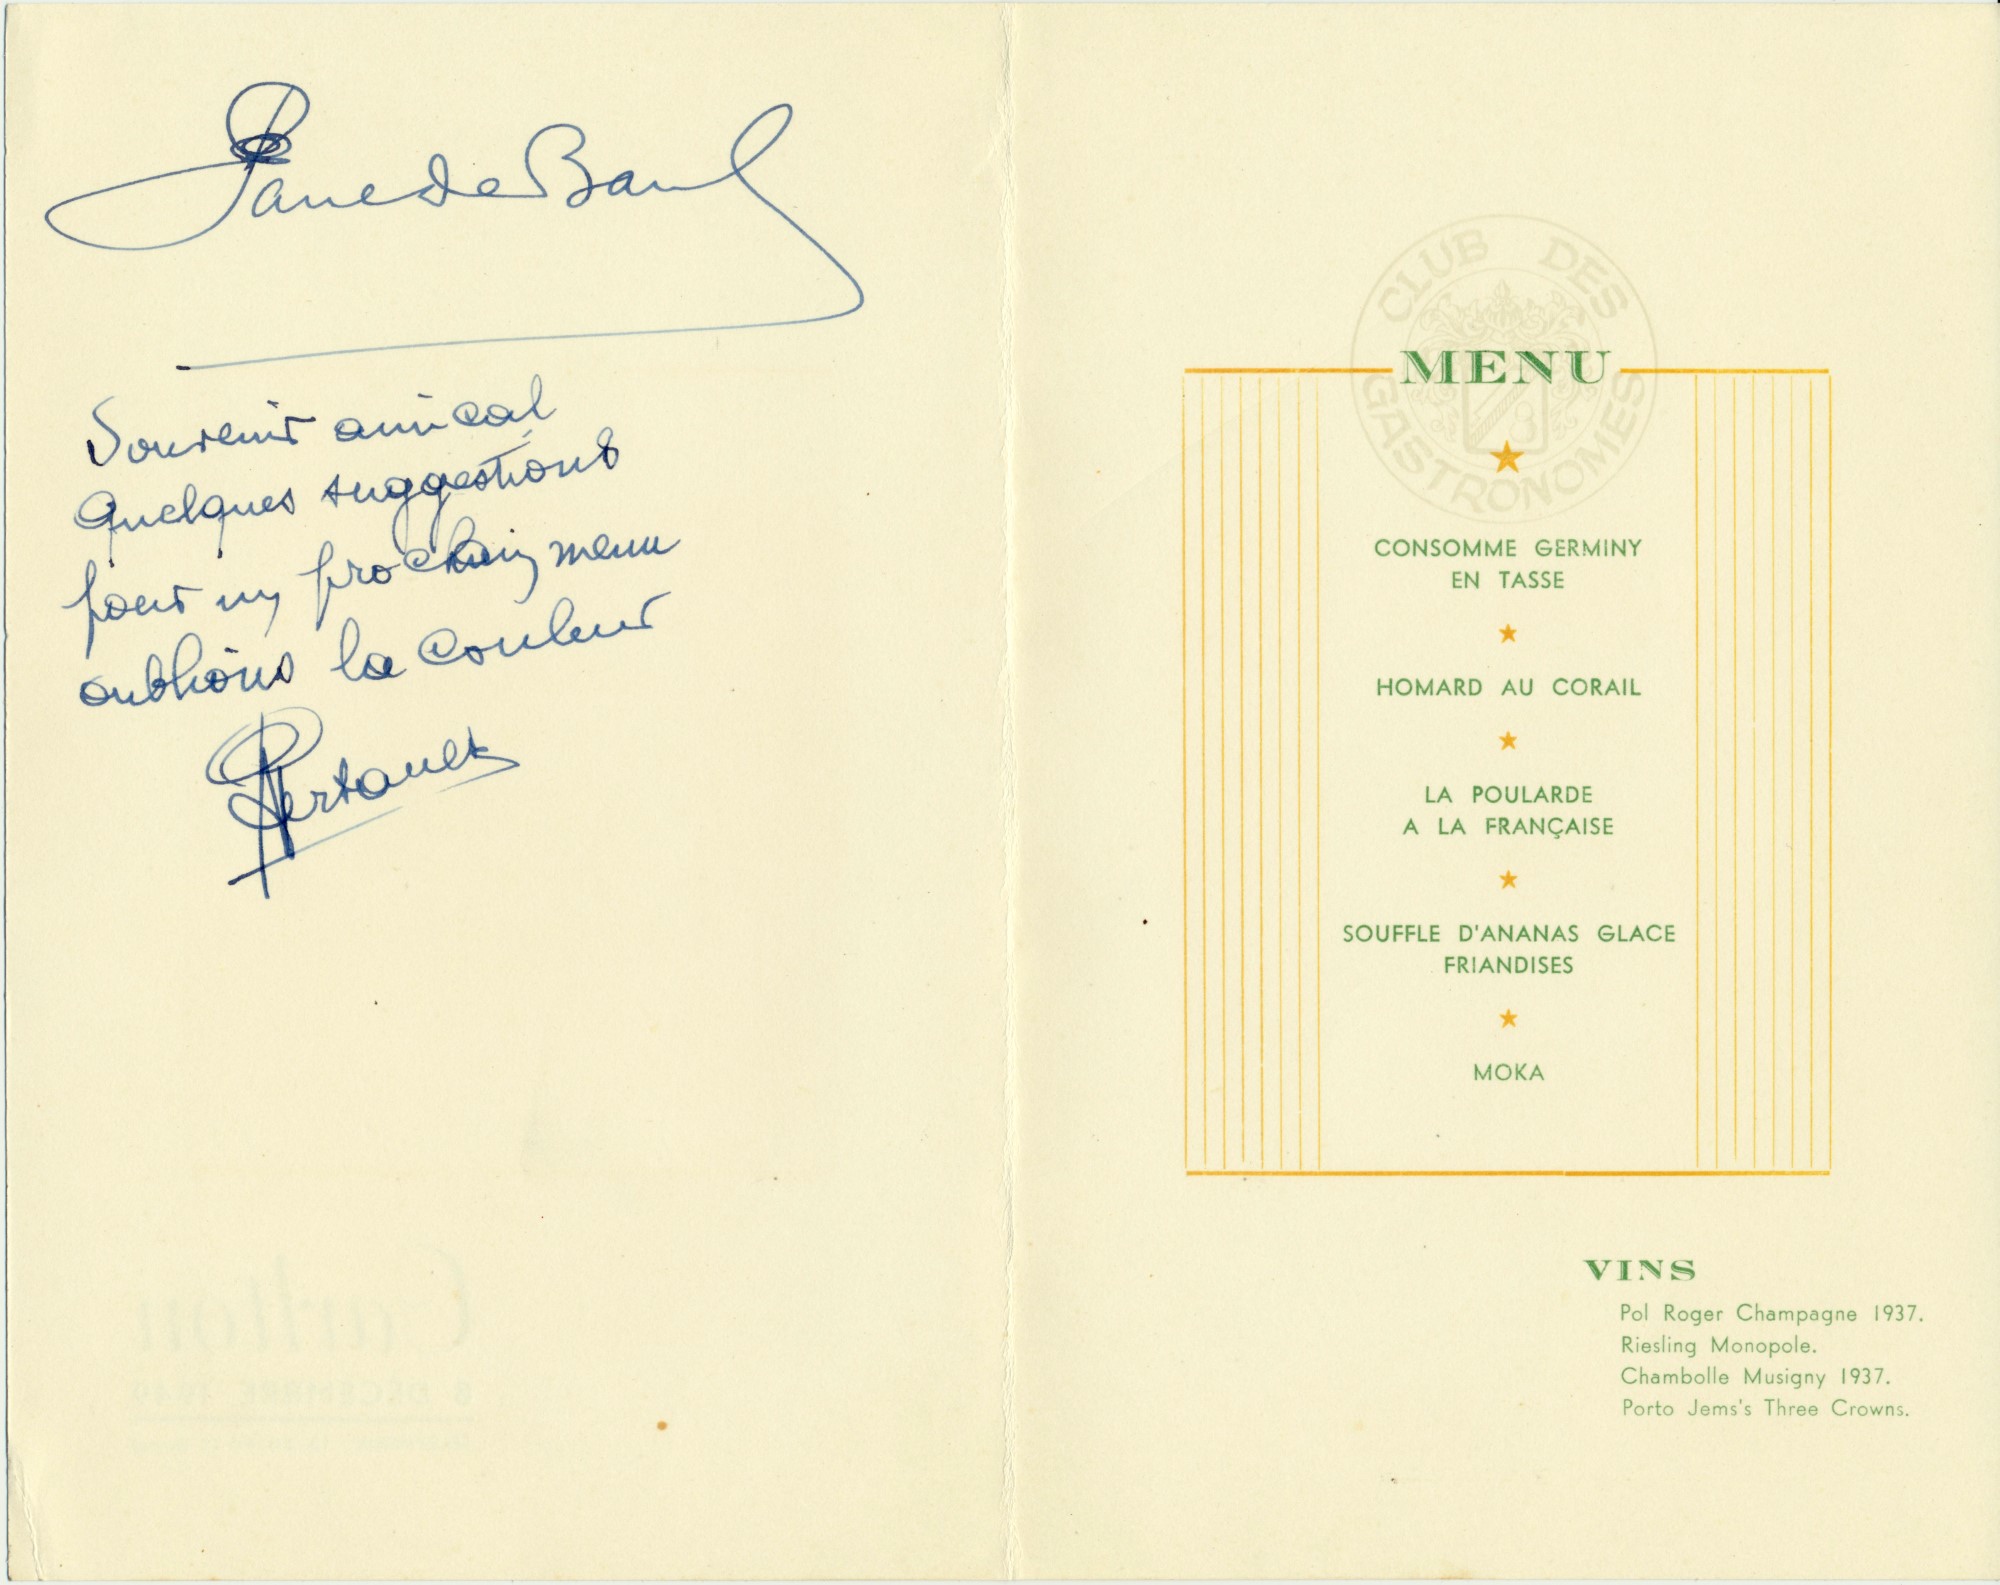 Jane de Banl
Souvenir amical
Quelques suggestions
pour un prochain menu
oublions la couleur
CLUB DES
GASTRONOMES
MENU
CONSOMME GERMINY
EN TASSE
HOMARD AU CORAIL
LA POULARDE
A LA FRANÇAISE
SOUFFLE D'ANANAS GLACE
FRIANDISES
MOKA
VINS
Pol Roger Champagne 1937.
Riesling Monopole.
Chambolle Musigny 1937.
Porto Jems's Three Crowns.
Carlton